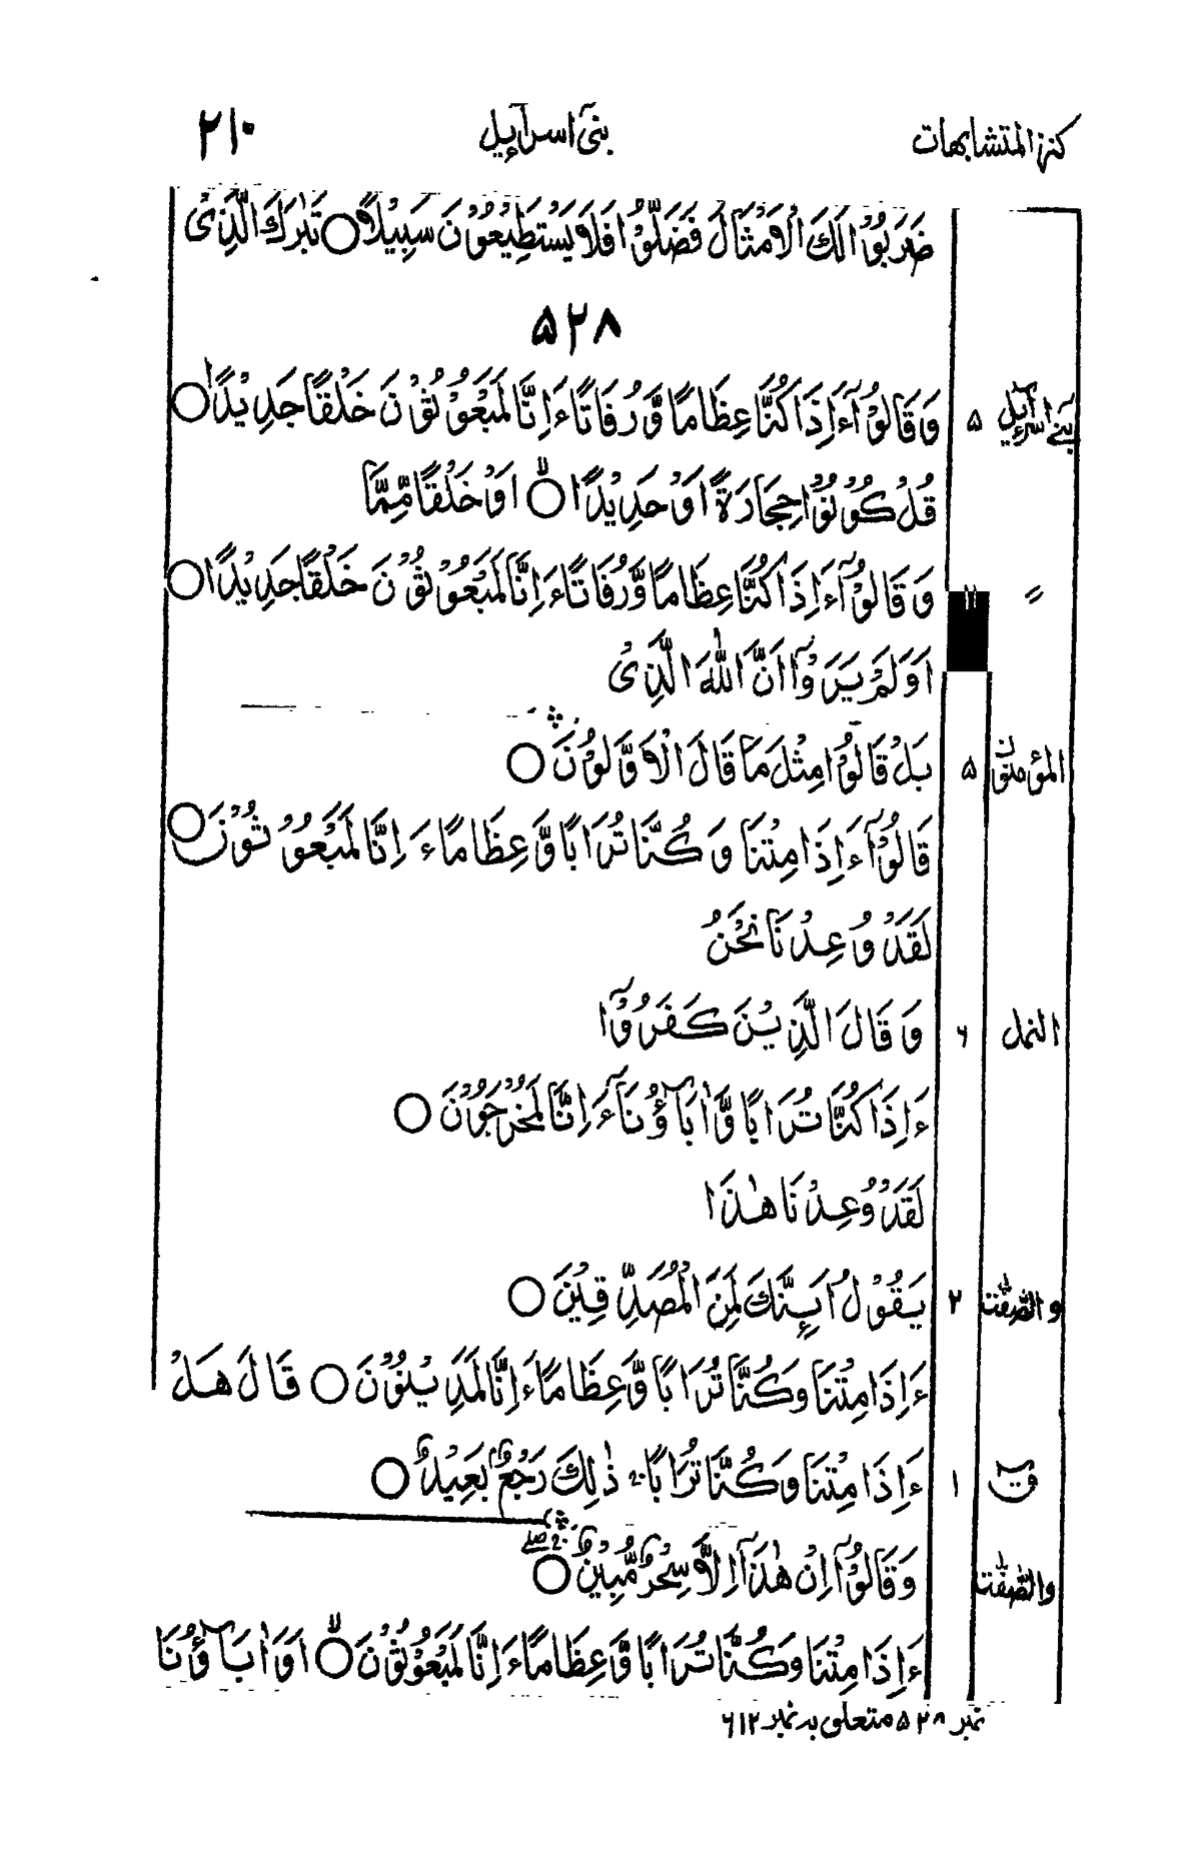 كنز المتشابهات بنیٓ اسرآءیل ۲۱۰
ضَرَبُوْا لَكَ الْاَمْثَالَ فَضَلُّوْا فَلَا يَسْتَطِيْعُوْنَ سَبِيْلًا ○ تَبٰرَكَ الَّذِىْ
۵۲۸
بنیٓ اسرآءیل ۵ وَقَالُوْٓا ءَاِذَا كُنَّا عِظَامًا وَّرُفَاتًا ءَاِنَّا لَمَبْعُوْثُوْنَ خَلْقًا جَدِيْدًا ○
قُلْ كُوْنُوْا حِجَارَةً اَوْ حَدِيْدًا ○ اَوْ خَلْقًا مِّمَّا
〃 ۱۱ وَقَالُوْٓا ءَاِذَا كُنَّا عِظَامًا وَّرُفَاتًا ءَاِنَّا لَمَبْعُوْثُوْنَ خَلْقًا جَدِيْدًا ○
اَوَلَمْ يَرَوْا اَنَّ اللّٰهَ الَّذِىْ
المؤمنون ۵ بَلْ قَالُوْا مِثْلَ مَا قَالَ الْاَوَّلُوْنَ ○
قَالُوْٓا ءَاِذَا مِتْنَا وَكُنَّا تُرَابًا وَّعِظَامًا ءَاِنَّا لَمَبْعُوْثُوْنَ ○
لَقَدْ وُعِدْنَا نَحْنُ
النمل ۶ وَقَالَ الَّذِيْنَ كَفَرُوْٓا
ءَاِذَا كُنَّا تُرَابًا وَّاٰبَآؤُنَآ ءَاِنَّا لَمُخْرَجُوْنَ ○
لَقَدْ وُعِدْنَا هٰذَا
والصّٰفّٰت ۲ يَقُوْلُ اَئِنَّكَ لَمِنَ الْمُصَدِّقِيْنَ ○
ءَاِذَا مِتْنَا وَكُنَّا تُرَابًا وَّعِظَامًا ءَاِنَّا لَمَدِيْنُوْنَ ○ قَالَ هَلْ
قٓ ۱ ءَاِذَا مِتْنَا وَكُنَّا تُرَابًا ۚ ذٰلِكَ رَجْعٌۢ بَعِيْدٌ ○
والصّٰفّٰت وَقَالُوْٓا اِنْ هٰذَآ اِلَّا سِحْرٌ مُّبِيْنٌ ○
ءَاِذَا مِتْنَا وَكُنَّا تُرَابًا وَّعِظَامًا ءَاِنَّا لَمَبْعُوْثُوْنَ ○ اَوَاٰبَآؤُنَا
نمبر ۵۲۸ متعلق بہ نمبر ۶۱۲